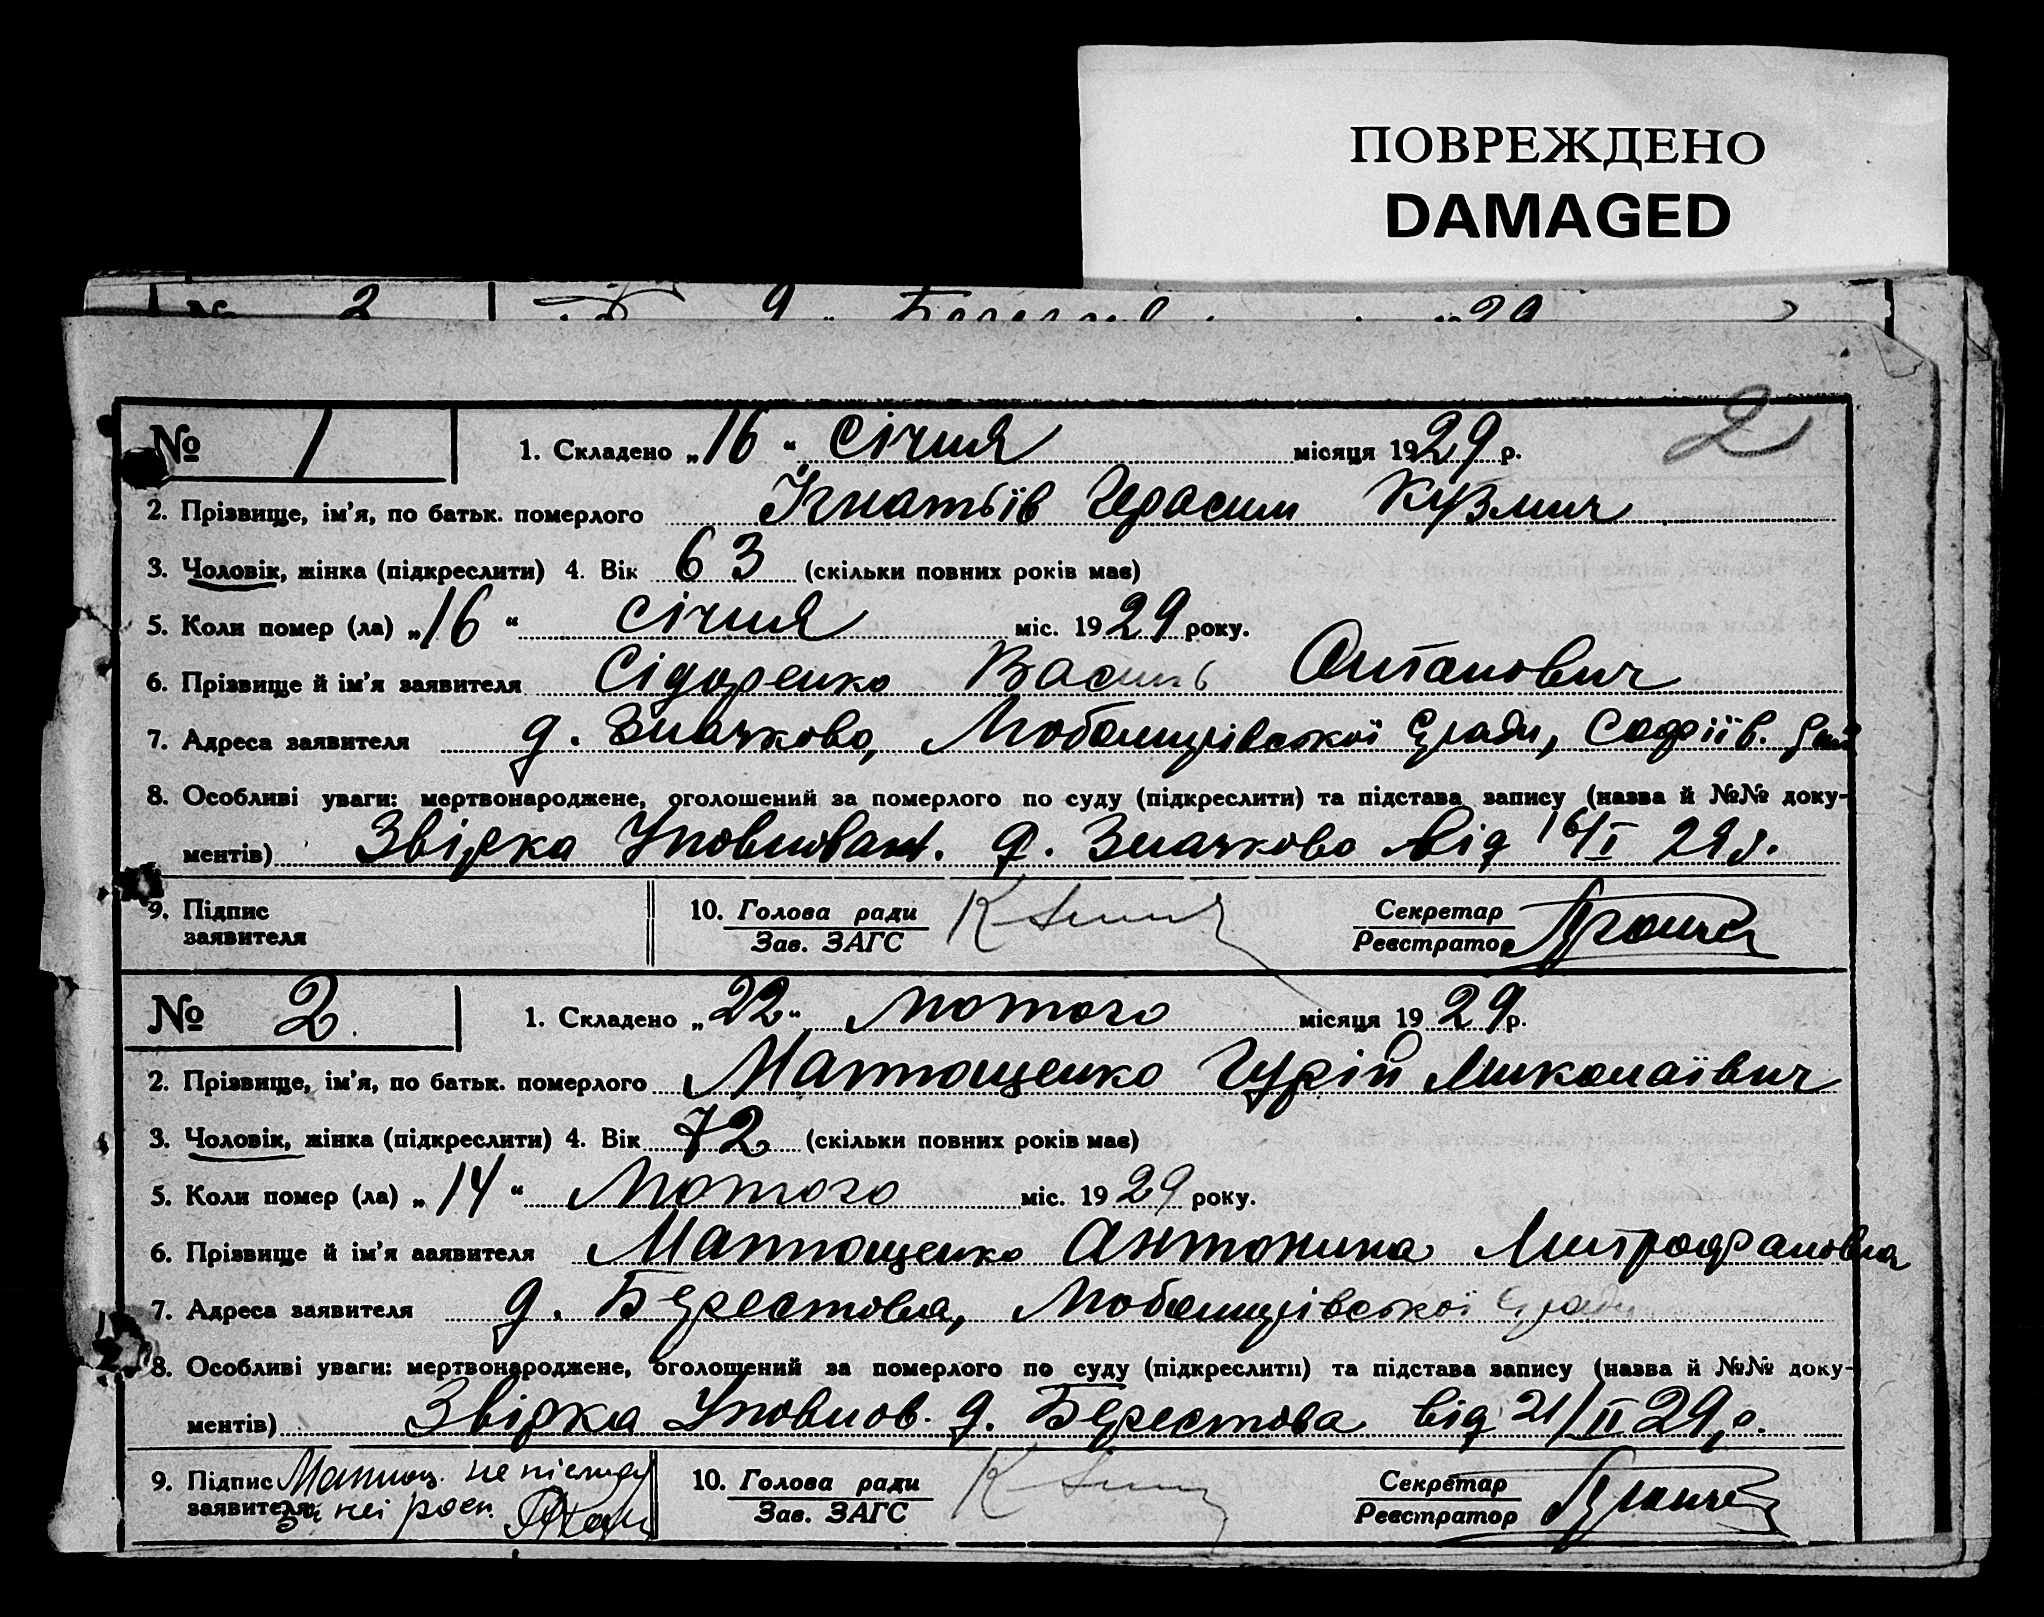 ПОВРЕЖДЕНО
DAMAGED
2
№ 1 1. Складено „16“ січня місяця 1929 р.
2. Прізвище, ім'я, по батьк. померлого Ігнатьїв Герасим Кузмич
3. Чоловік, жінка (підкреслити) 4. Вік 63 (скільки повних років має)
5. Коли помер (ла) „16“ січня міс. 1929 року.
6. Прізвище й ім'я заявителя Сідоренко Василь Антанович
7. Адреса заявителя д. Значково, Любомирівської с/ради, Софіїв.
8. Особливі уваги: мертвонароджене, оголошений за померлого по суду (підкреслити) та підстава запису (назва й №№ доку-
ментів) Звірка Уповноваж. д. Значково від 16/I 29 р.
9. Підпис заявителя 10. Голова ради Зав. ЗАГС Секретар Реєстратор
№ 2. 1. Складено „22“ лютого місяця 1929 р.
2. Прізвище, ім'я, по батьк. померлого Матющенко Гурій Миколаївич
3. Чоловік, жінка (підкреслити) 4. Вік 72 (скільки повних років має)
5. Коли помер (ла) „14“ Лютого міс. 1929 року.
6. Прізвище й ім'я заявителя Матющенко Антонина Митрофановна
7. Адреса заявителя д. Берестовка, Любомирівської с/ради
8. Особливі уваги: мертвонароджене, оголошений за померлого по суду (підкреслити) та підстава запису (назва й №№ доку-
ментів) Звірка Уповнов. д. Берестова від 21/II 29 р.
9. Підпис заявителя Матющ. не písьмен за неї росп. 10. Голова ради Зав. ЗАГС Секретар Реєстратор